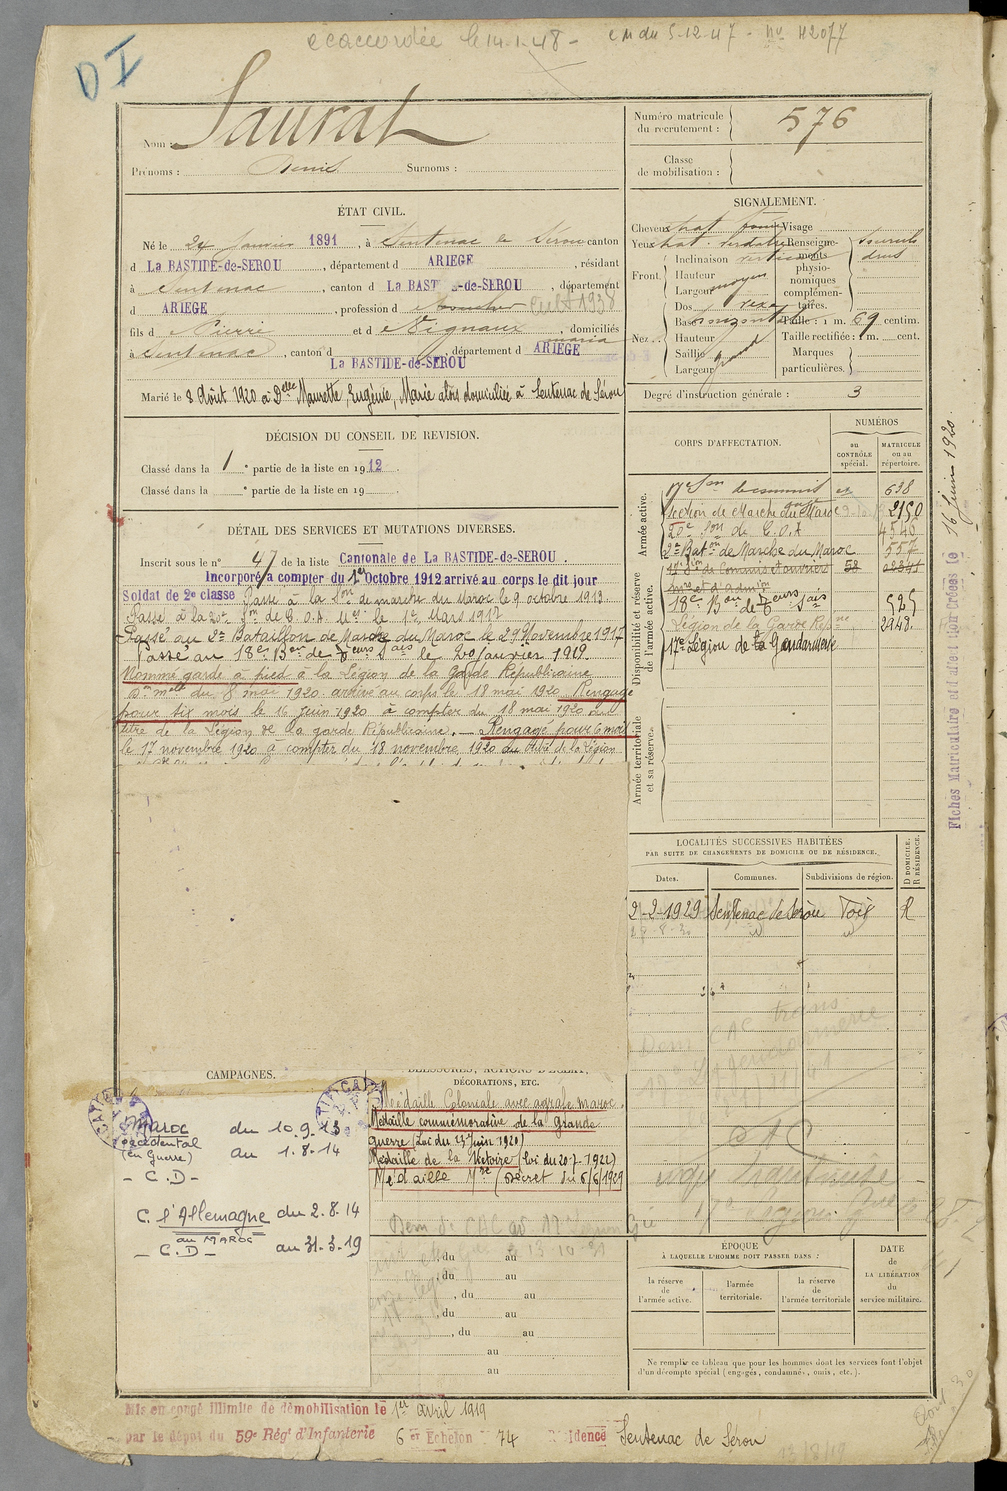 accordée le 14-1-48 - CM du 5-12-47 - No 42077
DI
Nom : Saurat
Prénoms : Denis Surnoms :
Numéro matricule
du recrutement : 576
Classe
de mobilisation :
ÉTAT CIVIL.
Né le 24 Janvier 1891, à Sentenac de Sérou canton
d La BASTIDE-de-SEROU, département d ARIEGE, résidant
à Sentenac, canton d La BAST -de-SEROU, département
d ARIEGE, profession d Cult 1938
fils d Pierre et d Vignaux maria, domiciliés
à Sentenac, canton d La BASTIDE-de-SEROU, département d ARIEGE
Marié le 8 Août 1920 à Delle Maurette, Eugénie, Marie alors domiciliée à Sentenac de Sérou
SIGNALEMENT.
Cheveux chat Visage
Yeux chat. verdatre Renseigne-
ments
physio-
nomiques
complémen-
taires. Sourcils
droits
Front. Inclinaison verticale
Hauteur
Largeur moyen
Nez. Dos vexe
Base horizontale
Hauteur
Saillie
Largeur grand
Taille : 1 m. 69 centim.
Taille rectifiée : 1 m. cent.
Marques
particulières.
Degré d'instruction générale : 3
DÉCISION DU CONSEIL DE REVISION.
Classé dans la 1 e partie de la liste en 1912.
Classé dans la e partie de la liste en 19
CORPS D'AFFECTATION.
NUMÉROS
au
CONTRÔLE
spécial.
MATRICULE
ou au
répertoire.
Armée active.
17e Son de commis et 638
Section de Marche du Maroc 2150
20e Son de C.O.A 4546
2e Baton de Marche du Maroc 557
Disponibilité et réserve
de l'armée active.
17e Son de Commis et ouvriers 58
mre et d'admon
18e Bon de Teurs Sais 525
Légion de la Garde Répne 2948.
17me Légion de la Gendarmerie
Armée territoriale
et sa réserve.
DÉTAIL DES SERVICES ET MUTATIONS DIVERSES.
Inscrit sous le n° 47 de la liste Cantonale de La BASTIDE-de-SEROU.
Incorporé à compter du 1er Octobre 1912 arrivé au corps le dit jour
Soldat de 2e classe Passé à la Son de marche du Maroc le 9 octobre 1913.
Passé à la 20e Son de C.O.A le 1er Mars 1917
Passé au 2e Bataillon de Marche du Maroc le 29 Novembre 1917
Passé au 18e Bon de Teurs Sais le 20 Janvier 1919.
Nommé garde à pied à la Légion de la Garde Républicaine
Don melle du 8 mai 1920 arrivé au corps le 18 mai 1920 Rengagé
pour six mois le 16 Juin 1920 à compter du 18 mai 1920 au
titre de la Légion de la garde Républicaine. — Rengagé pour 6 mois
le 17 novembre 1920 à compter du 18 novembre 1920 au titre de la Légion
16 Juin 1920.
Fiches Matriculaire et d'affectation Créées le
LOCALITÉS SUCCESSIVES HABITÉES
PAR SUITE DE CHANGEMENTS DE DOMICILE OU DE RÉSIDENCE.
D DOMICILE.
R RÉSIDENCE.
Dates. Communes. Subdivisions de région.
2-2-1929 Sentenac de Sérou Foix R
CAMPAGNES.
Maroc du 10.9.13
occidental
(en Guerre) au 1.8.14
- C.D -
C. c/ l'Allemagne du 2.8.14
au MAROC
- C.D - au 31.3.19
BLESSURES, ACTIONS D'ÉCLAT,
DÉCORATIONS, ETC.
Médaille Coloniale avec agrafe maroc.
Médaille commémorative de la Grande
guerre (Loi du 23 Juin 1920)
Médaille de la Victoire (loi du 20-7-1922)
Médaille Mre (Décret du 6/6/1929
du au
du au
, du au
, du au
, du au
au
au
CAC
ÉPOQUE
À LAQUELLE L'HOMME DOIT PASSER DANS :
la réserve
de
l'armée active.
l'armée
territoriale.
la réserve
de
l'armée territoriale
DATE
de
LA LIBÉRATION
du
service militaire.
Ne remplir ce tableau que pour les hommes dont les services font l'objet
d'un décompte spécial (engagés, condamnés, omis, etc.).
Mis en congé illimité de démobilisation le 1er avril 1919
par le dépôt du 59e Régt d'Infanterie 6 er Echelon 74 Résidence Sentenac de Sérou